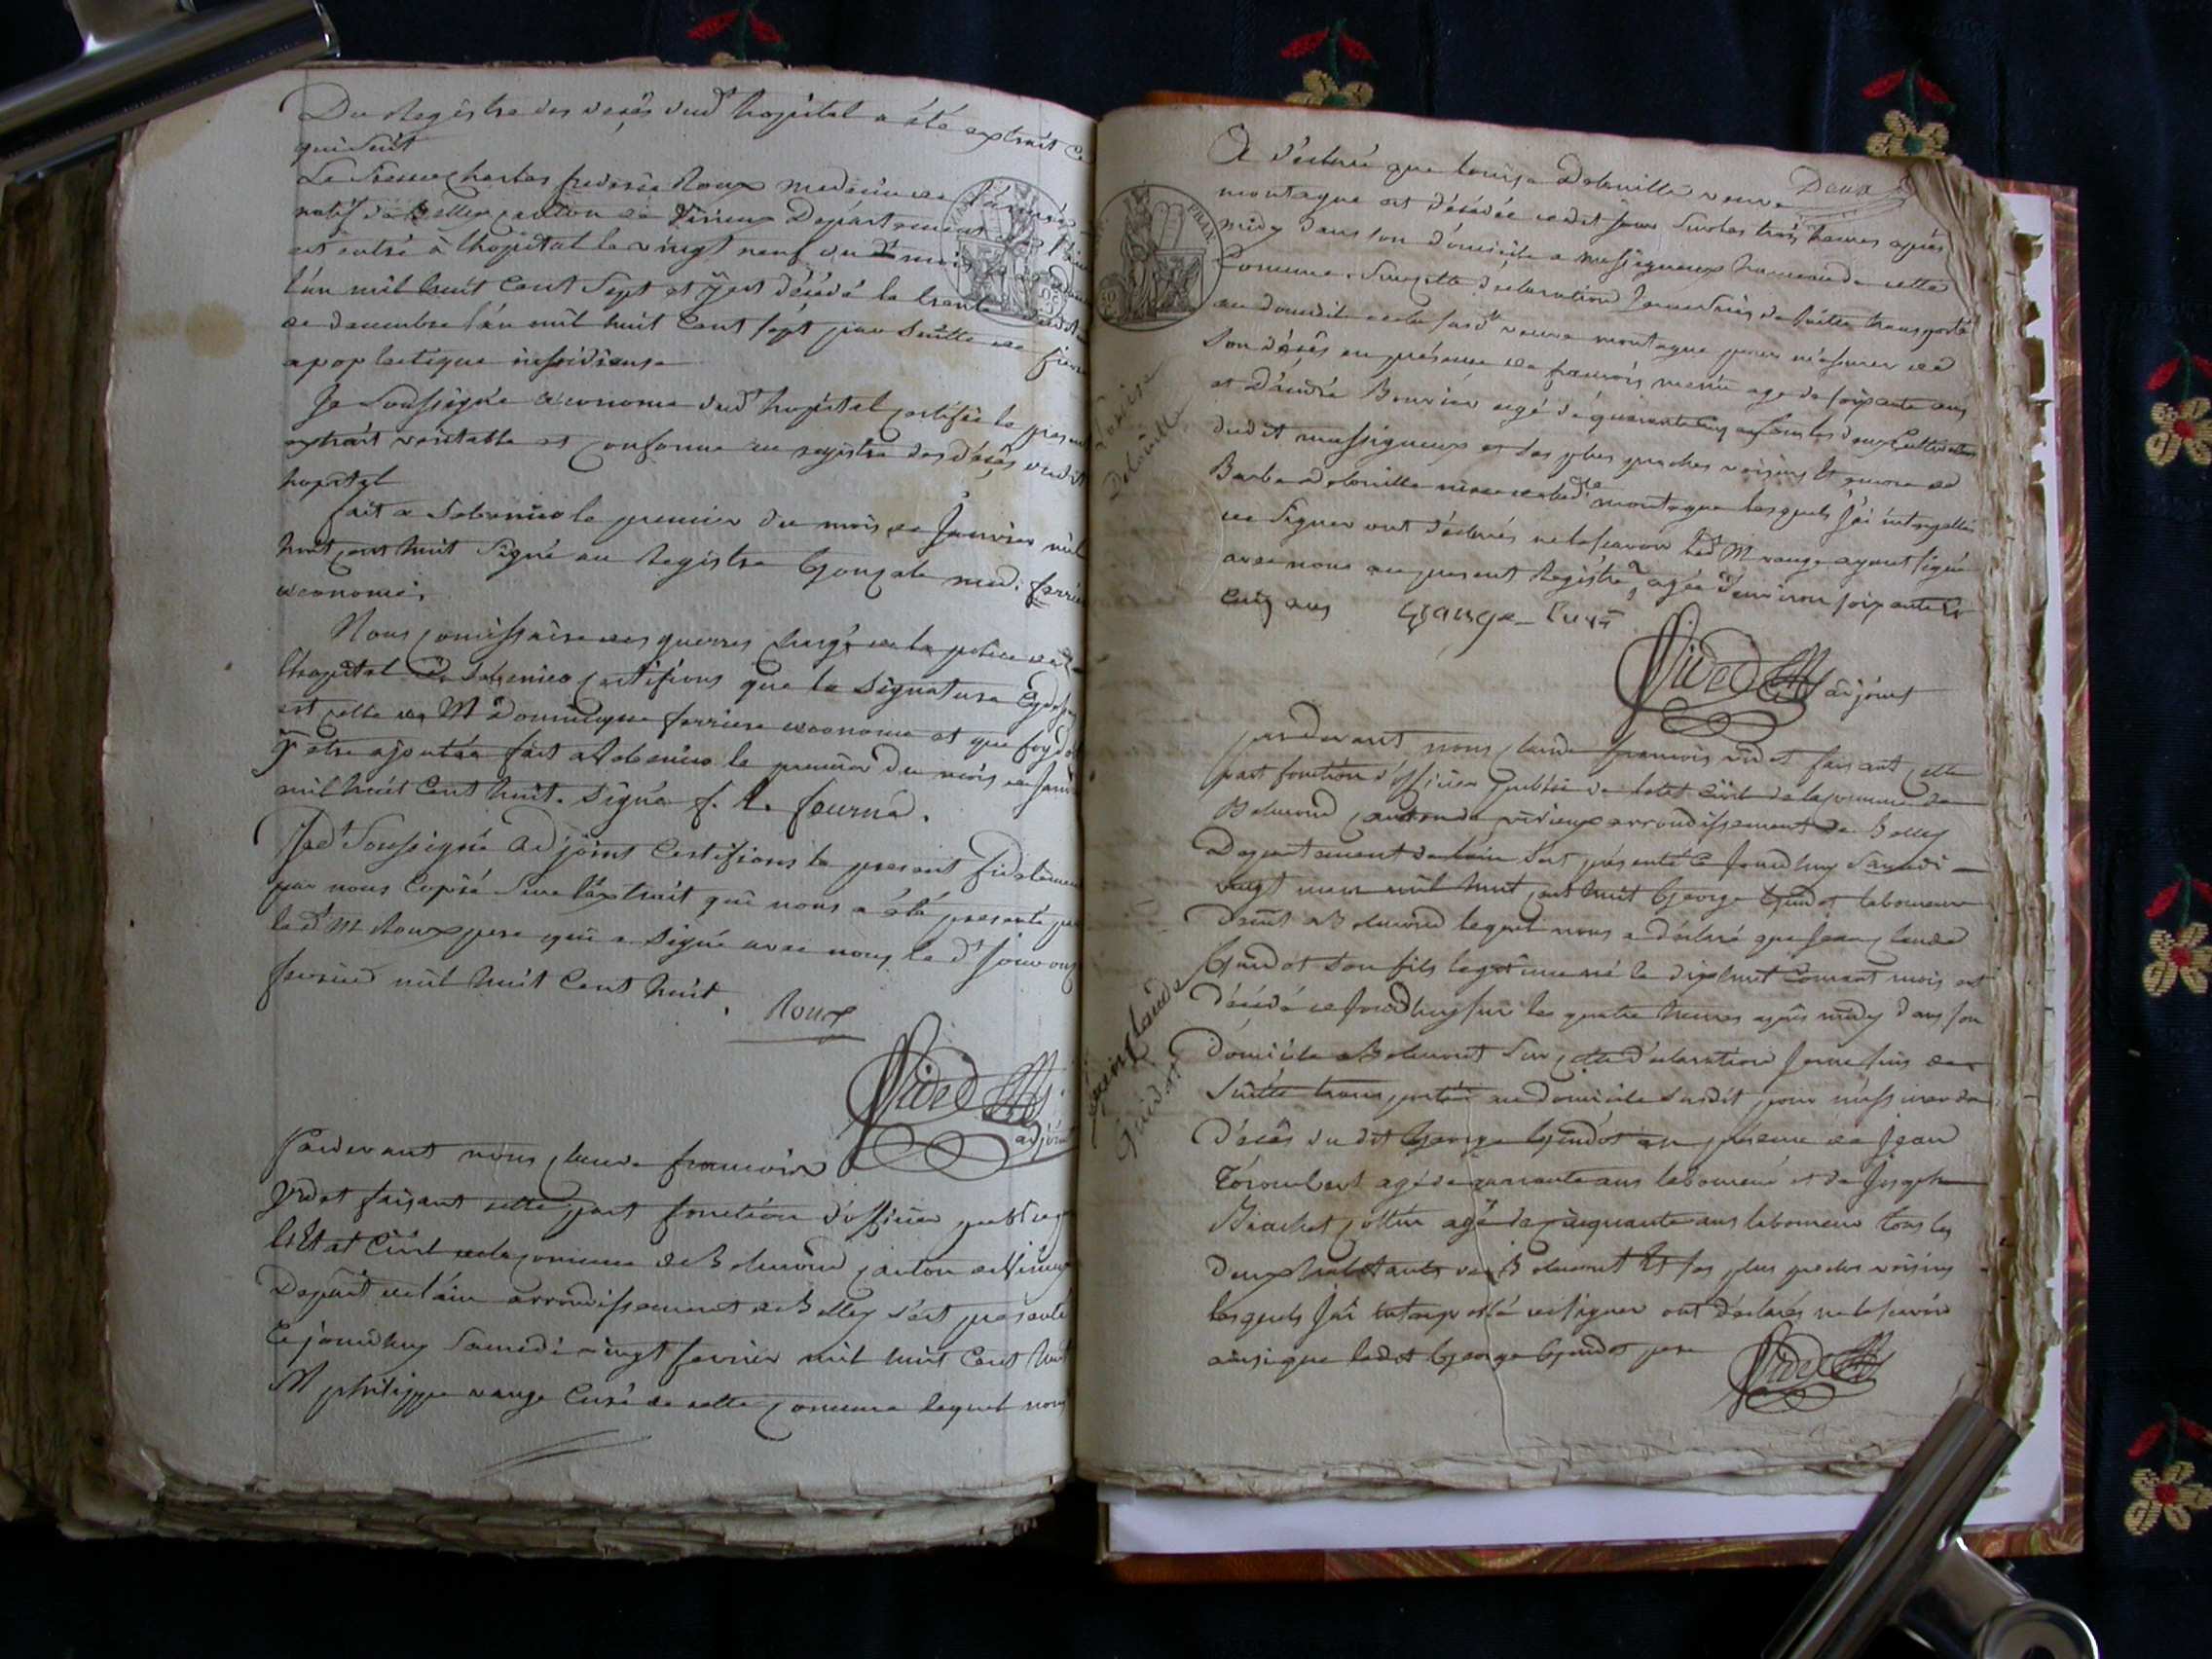 Du Registre des decés dud hopital a été extrait ce
qui suit
Le Sieur Charles frederic Roux medecin de l'armée
natif de Belley canton de Virieu Departement
est entré à l'hopital le vingt neuf du d mois
l'an mil huit Cent Sept et y est décédé le trente
de decembre l'an mil huit Cent sept par Suitte de fievre
apoplectique insidieuse
Je Soussigné oeconome dud hopital certifie le present
extrait veritable et conforme au registre des décés dudit
hopital
fait a Sebenico le premier du mois de Janvier mil
huit cent huit Signé au Registre Gonzale med. ferriere
oeconome.
Nous comissaire des guerres chargé de la police de
l'hopital de Sebenico certifions que la Signature Cydessus
est celle de M Dominique ferriere oeconome et que foy doit
y etre ajoutée fait a Sebenico le premier du mois de Janvier
mil huit Cent huit. Signé f. R. fournd.
Nd Soussigné Adjoint Certifions le present fidelement
par nous Copié Sur l'extrait qui nous a été presenté par
le dt M Roux pere qui a Signé avec nous le dt jour onze
fevrier mil huit Cent huit.
Roux
Videt
adjoint
Pardevant nous Claude francois
Videt faisant cette part fonction d'officier public de
l'Etat Civil de la comune de Belmond canton de Virieu
Depart de l'ain arrondissement de Belley s'est presenté
Cejourdhuy Samedi vingt fevrier mil huit Cent huit
M philippe range Curé de cette comune lequel nous
Deux
A déclaré que Louise Delouille veuve
montagne est décédée cedit jour Sur les trois heures après
midy dans son domicile a massigneux hameau de cette
Comune. Sur cette declaration Je me Suis de Suitte transporté
au domicile de la susdt veuve montagne pour m'assurer de
Son décés en présence de francois agé de soixante ans
et D'andré Bouvier agé de quarante Cinq ans tous les deux Cultivateurs
dudit massigneux et ses plus proches voisins Et encore de
Barbe Delouille niece de lad. ve montagne lesquels J'ai interpellés
de Signer ont déclarés ne le scavoir led M range ayant signé
avec nous au present Registre, agée d'environ soixante
Cinq ans range Curé
Videt adjoint
Louise
Delouille
pardevant nous Claude francois videt faisant cette
part fonction d'officier public de l'etat Civil de la comune de
Belmond canton de virieux arrondissement de Belley
Departement de l'ain S'est présenté Cejourdhuy Samedi
vingt mars mil huit cent huit George Guidot laboureur
Demt a Belmond lequel nous a déclaré que Jean Claude
Guidot Son fils legitime né le dix huit Courant mois est
Décédé cejourdhuy sur les quatre heures après midy dans son
domicile a Belmont Sur cette déclaration Je me suis de
Suitte transporté au domicile Susdit pour m'assurer du
Décés du dit George Guidot en présence de Jean
Térombert agé de quarante ans laboureur et de Joseph
Brachet Cottin agé de cinquante ans laboureur tous les
deux habitants de Belmont Et ses plus proches voisins
lesquels J'ai interpellé de signer ont déclarés ne le scavoir
ainsi que ledit George Guidot pere Videt
Jean Claude
Guidot